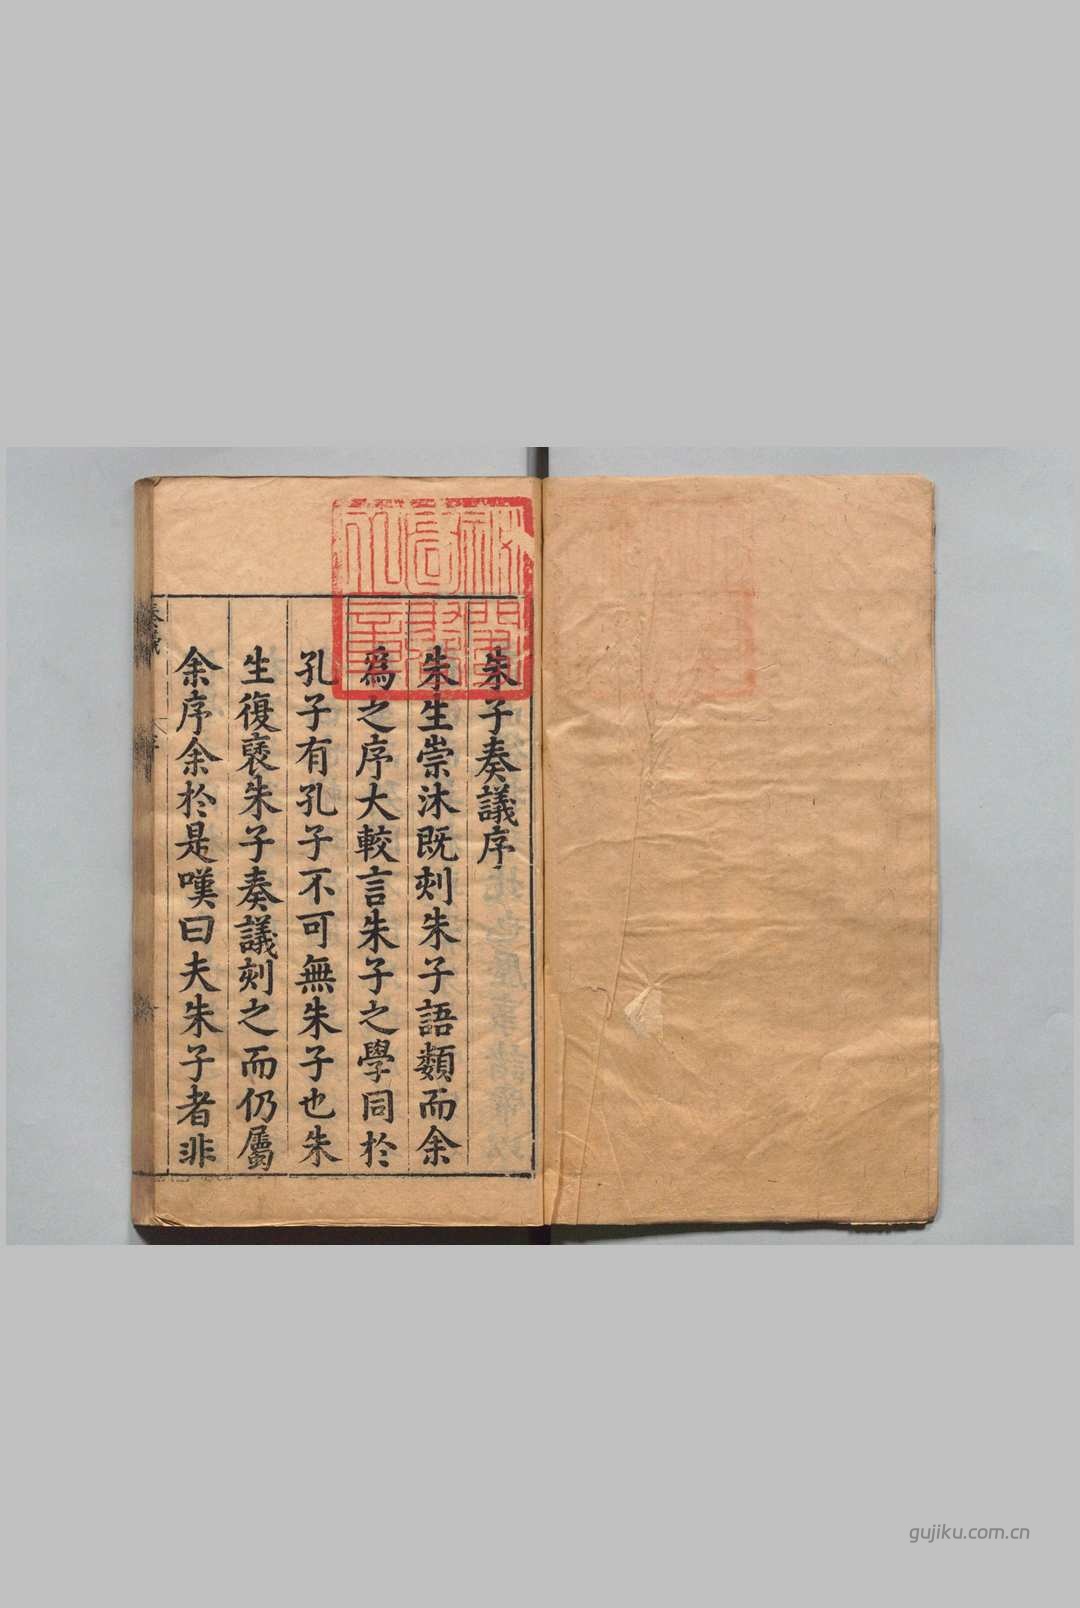 朱子奏議序
朱生崇沐既刻朱子語類而余
爲之序大較言朱子之學同於
孔子有孔子不可無朱子也朱
生復裒朱子奏議刻之而仍屬
余序余於是嘆曰夫朱子者非
奏議
序
gujiku.com.cn